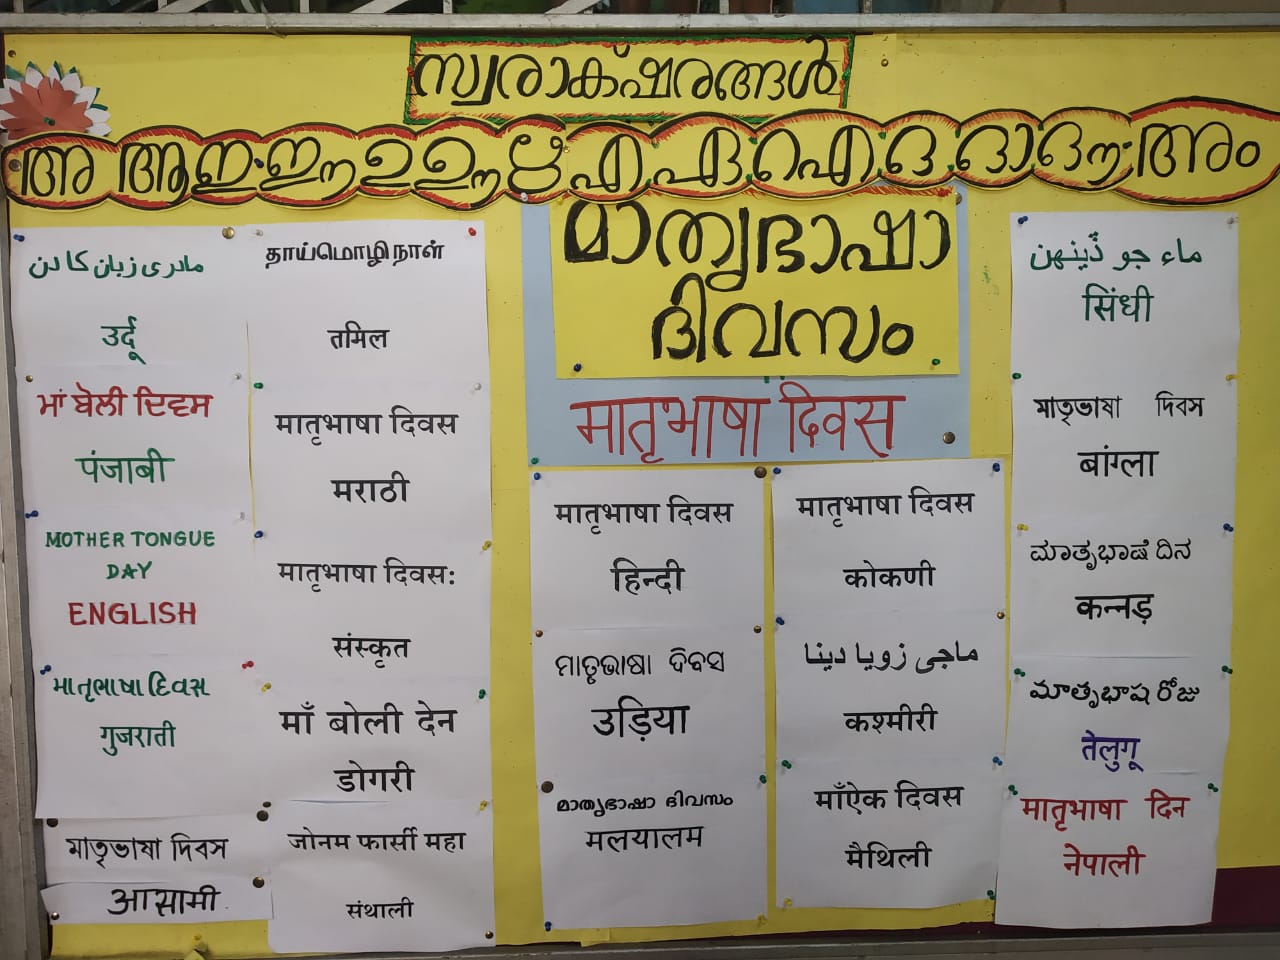 സ്വരാക്ഷരങ്ങൾ
അ ആ ഇ ഈ ഉ ഊ ഋ എ ഏ ഐ ഒ ഓ ഔ അം
മാതൃഭാഷാ
ദിവസം
मातृभाषा दिवस
مادری زبان کا دن
उर्दू
ਮਾਂ ਬੋਲੀ ਦਿਵਸ
पंजाबी
MOTHER TONGUE
DAY
ENGLISH
માતૃભાષા દિવસ
गुजराती
মাতৃভাষা দিবস
आसामी
தாய்மொழி நாள்
तमिल
मातृभाषा दिवस
मराठी
मातृभाषा दिवस:
संस्कृत
माँ बोली देन
डोगरी
जोनम फार्सी महा
संथाली
मातृभाषा दिवस
हिन्दी
ମାତୃଭାଷା ଦିବସ
उड़िया
മാതൃഭാഷാ ദിവസം
मलयालम
मातृभाषा दिवस
कोकणी
ماجی زویا دینا
कश्मीरी
माँऐक दिवस
मैथिली
ماءِ جو ڏينهن
सिंधी
মাতৃভাষা দিবস
बांग्ला
ಮಾತೃಭಾಷೆ ದಿನ
कन्नड़
మాతృభాష రోజు
तेलुगू
मातृभाषा दिन
नेपाली